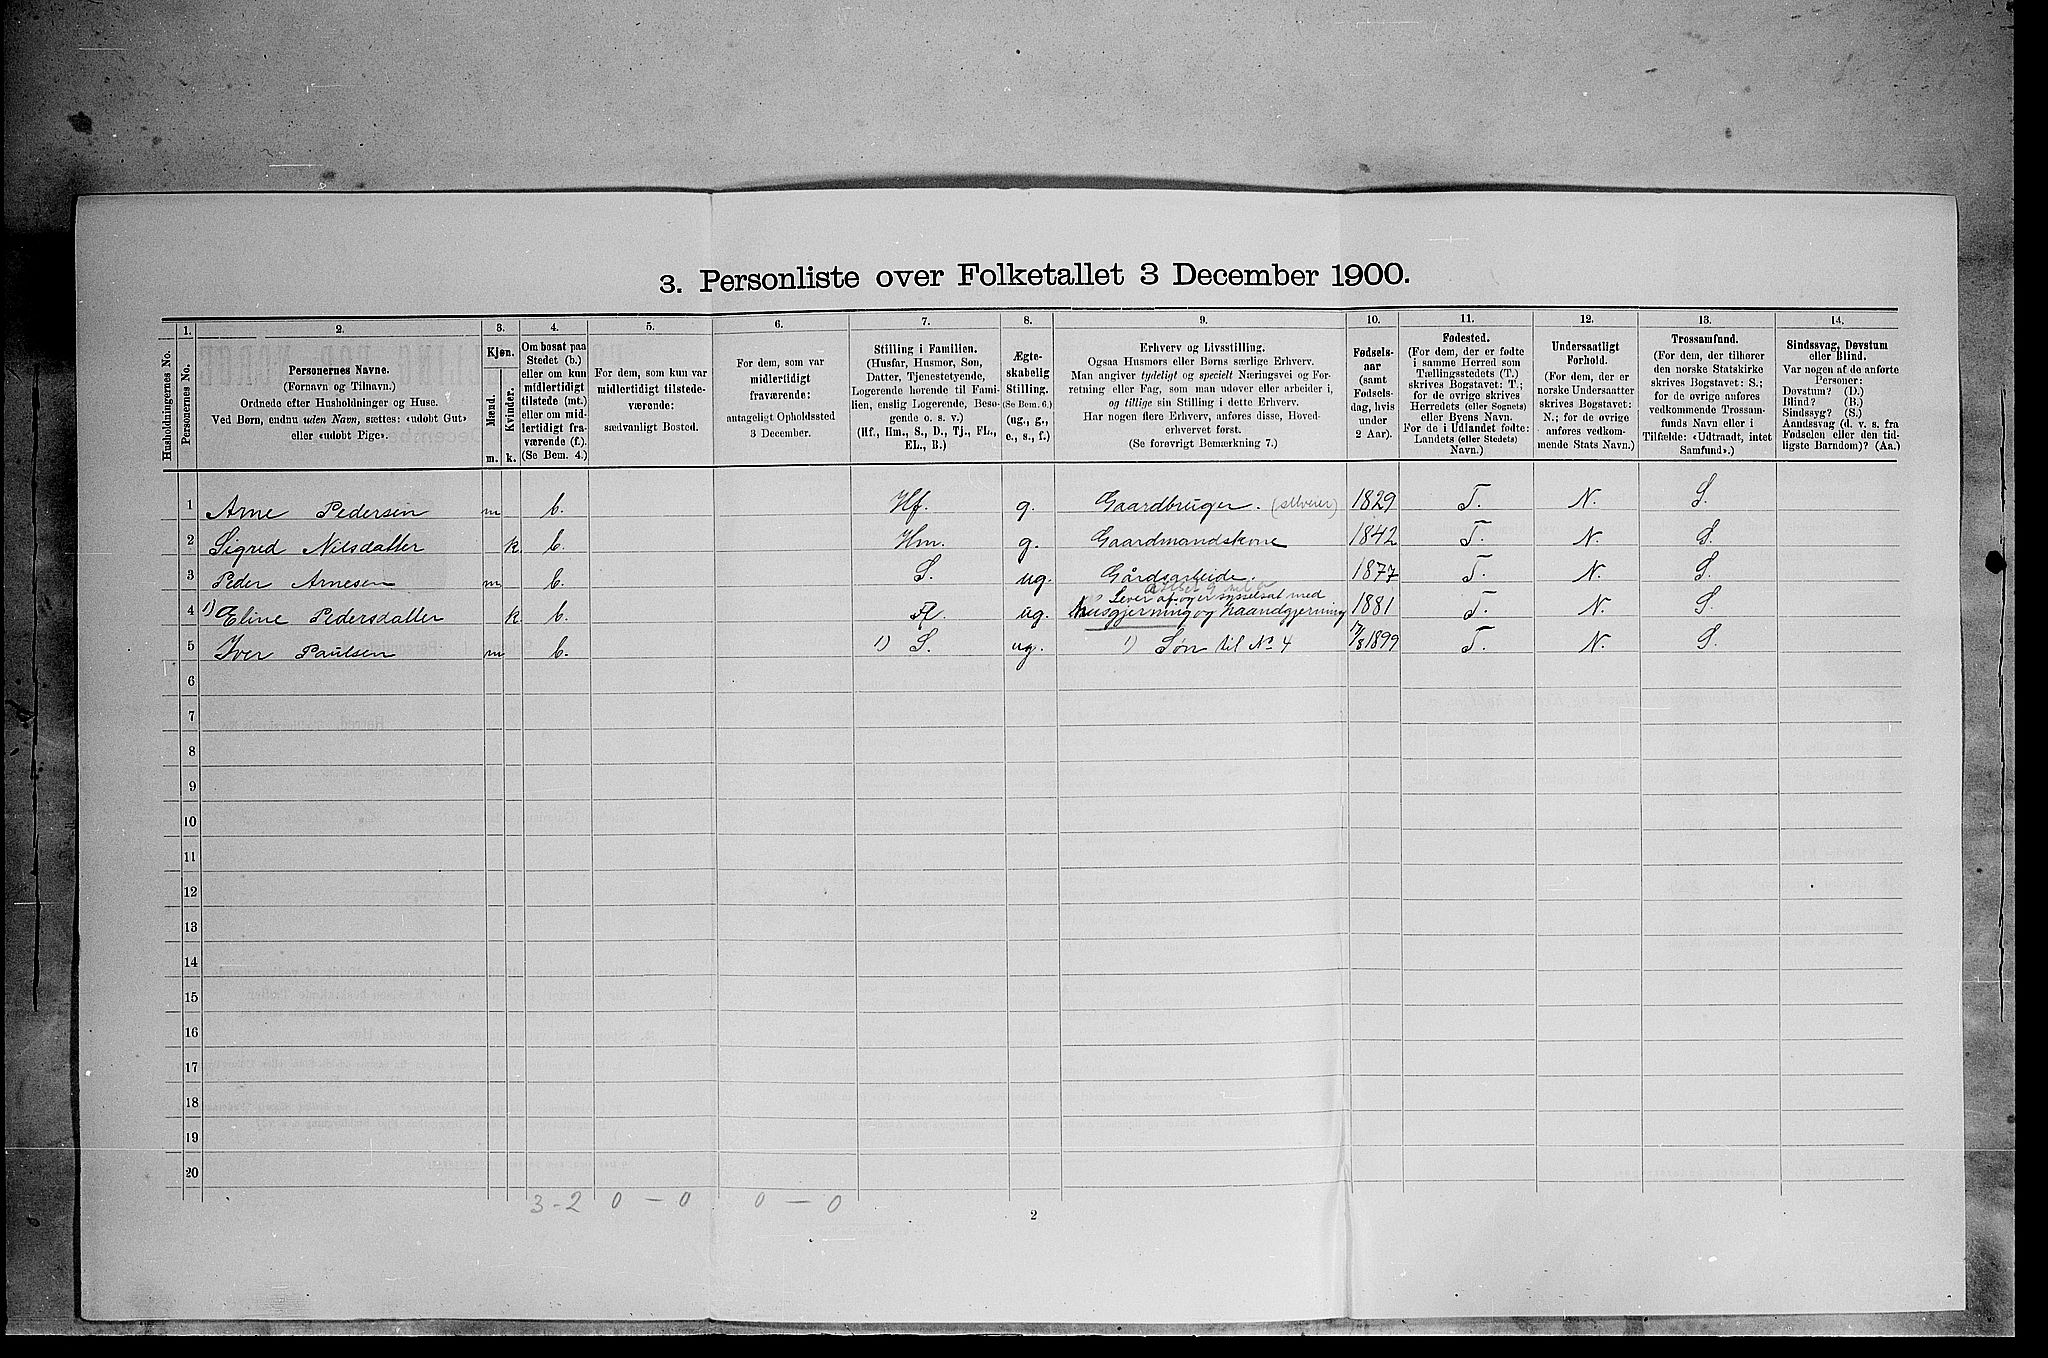 3. Personliste over Folketallet 3 December 1900.
Husholdningernes No.
1.
Personernes No.
2.
Personernes Navne.
(Fornavn og Tilnavn.)
Ordnede efter Husholdninger og Huse.
Ved Børn, endnu uden Navn, sættes: «udobt Gut»
eller «udobt Pige».
3.
Kjøn.
Mænd.
Kvinder.
m. k.
4.
Om bosat paa
Stedet (b.)
eller om kun
midlertidigt
tilstede (mt.)
eller om mid-
lertidigt fra-
værende (f.)
(Se Bem. 4.)
5.
For dem, som kun var
midlertidigt tilstede-
værende:
sædvanligt Bosted.
6.
For dem, som var
midlertidigt
fraværende:
antageligt Opholdssted
3 December.
7.
Stilling i Familien.
(Husfar, Husmor, Søn,
Datter, Tjenestetyende,
Logerende hørende til Fami-
lien, enslig Logerende, Besø-
gende o. s. v.)
(Hf., Hm., S., D., Tj., FL.,
EL., B.)
8.
Ægte-
skabelig
Stilling.
(Se Bem. 6.)
(ug., g.,
e., s., f.)
9.
Erhverv og Livsstilling.
Ogsaa Husmors eller Børns særlige Erhverv.
Man angiver tydeligt og specielt Næringsvei og For-
retning eller Fag, som man udover eller arbeider i,
og tillige sin Stilling i dette Erhverv.
Har nogen flere Erhverv, anføres disse, Hoved-
erhvervet først.
(Se forøvrigt Bemærkning 7.)
10.
Fødsels-
aar
(samt
Fødsels-
dag, hvis
under
2 Aar).
11.
Fødested.
(For dem, der er fødte
i samme Herred som
Tællingsstedets (T.)
skrives Bogstavet: T.;
for de øvrige skrives
Herredets (eller Sognets)
eller Byens Navn.
For de i Udlandet fødte:
Landets (eller Stedets)
Navn.)
12.
Undersaatligt
Forhold.
(For dem, der er
norske Undersaatter
skrives Bogstavet:
N.; for de øvrige
anføres vedkom-
mende Stats Navn.)
13.
Trossamfund.
(For dem, der tilhører
den norske Statskirke
skrives Bogstavet: S.;
for de øvrige anføres
vedkommende Trossam-
funds Navn eller i
Tilfælde: «Udtraadt, intet
Samfund».)
14.
Sindssvag, Døvstum
eller Blind.
Var nogen af de anførte
Personer:
Døvstum? (D.)
Blind? (B.)
Sindssyg? (S.)
Aandssvag (d. v. s. fra
Fødselen eller den tid-
ligste Barndom)? (Aa.)
1 Arne Pedersen m b. Hf. g. Gaardbruger. (selveier) 1829 T. N. S.
2 Sigred Nilsdatter k b. Hm. g. Gaardmandskone 1842 T. N. S.
3 Peder Arnesen m b. S. ug. Gårdsarbeide. 1877 T. N. S.
Lever af og er sysselsat med
4 1) Eline Pedersdatter k b. ug. husgjerning og haandgjerning 1881 T. N. S.
5 Iver Paulsen m b. 1) S. ug. 1) Søn til No 4 17/8 1899 T. N. S.
6
7
8
9
10
11
12
13
14
15
16
17
18
19
20
3 - 2 0 — 0 0 — 0
2